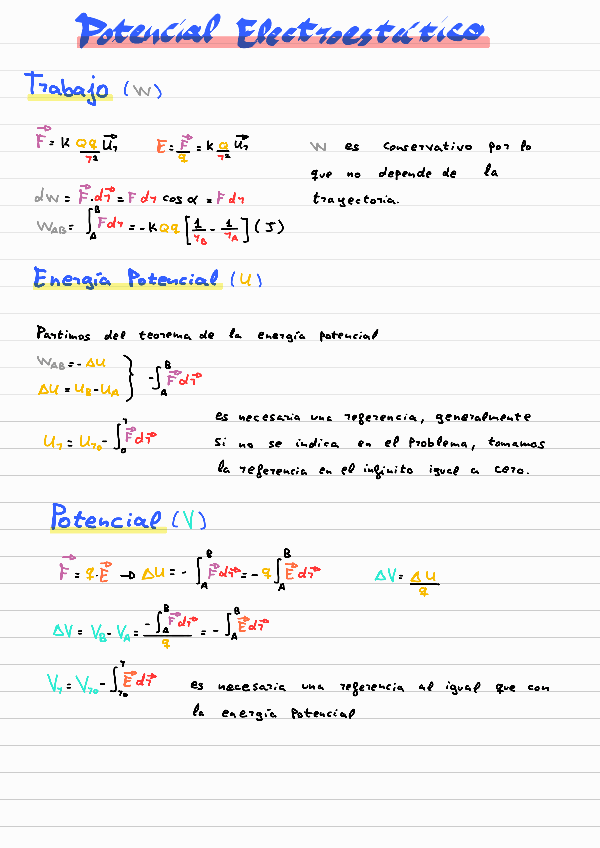 Potencial Electroestático
Trabajo (W)
F⃗ = K Qq/r² U⃗r   E = F⃗/q = K Q/r² U⃗r
W es conservativo por lo
que no depende de la
trayectoria.
dW = F⃗·dr⃗ = F dr cos α = F dr
W_AB = ∫_A^B F dr = -KQq [1/r_B - 1/r_A] (J)
Energía Potencial (U)
Partimos del teorema de la energía potencial
W_AB = -ΔU
ΔU = U_B - U_A } -∫_A^B F⃗ dr⃗
es necesaria una referencia, generalmente
U_r = U_r₀ - ∫_0^r F⃗ dr⃗
si no se indica en el problema, tomamos
la referencia en el infinito igual a cero.
Potencial (V)
F⃗ = q·E⃗ → ΔU = -∫_A^B F⃗ dr⃗ = -q ∫_A^B E⃗ dr⃗   ΔV = ΔU/q
ΔV = V_B - V_A = (-∫_A^B F⃗ dr⃗)/q = -∫_A^B E⃗ dr⃗
V_r = V_r₀ - ∫_r₀^r E⃗ dr⃗
es necesaria una referencia al igual que con
la energía Potencial